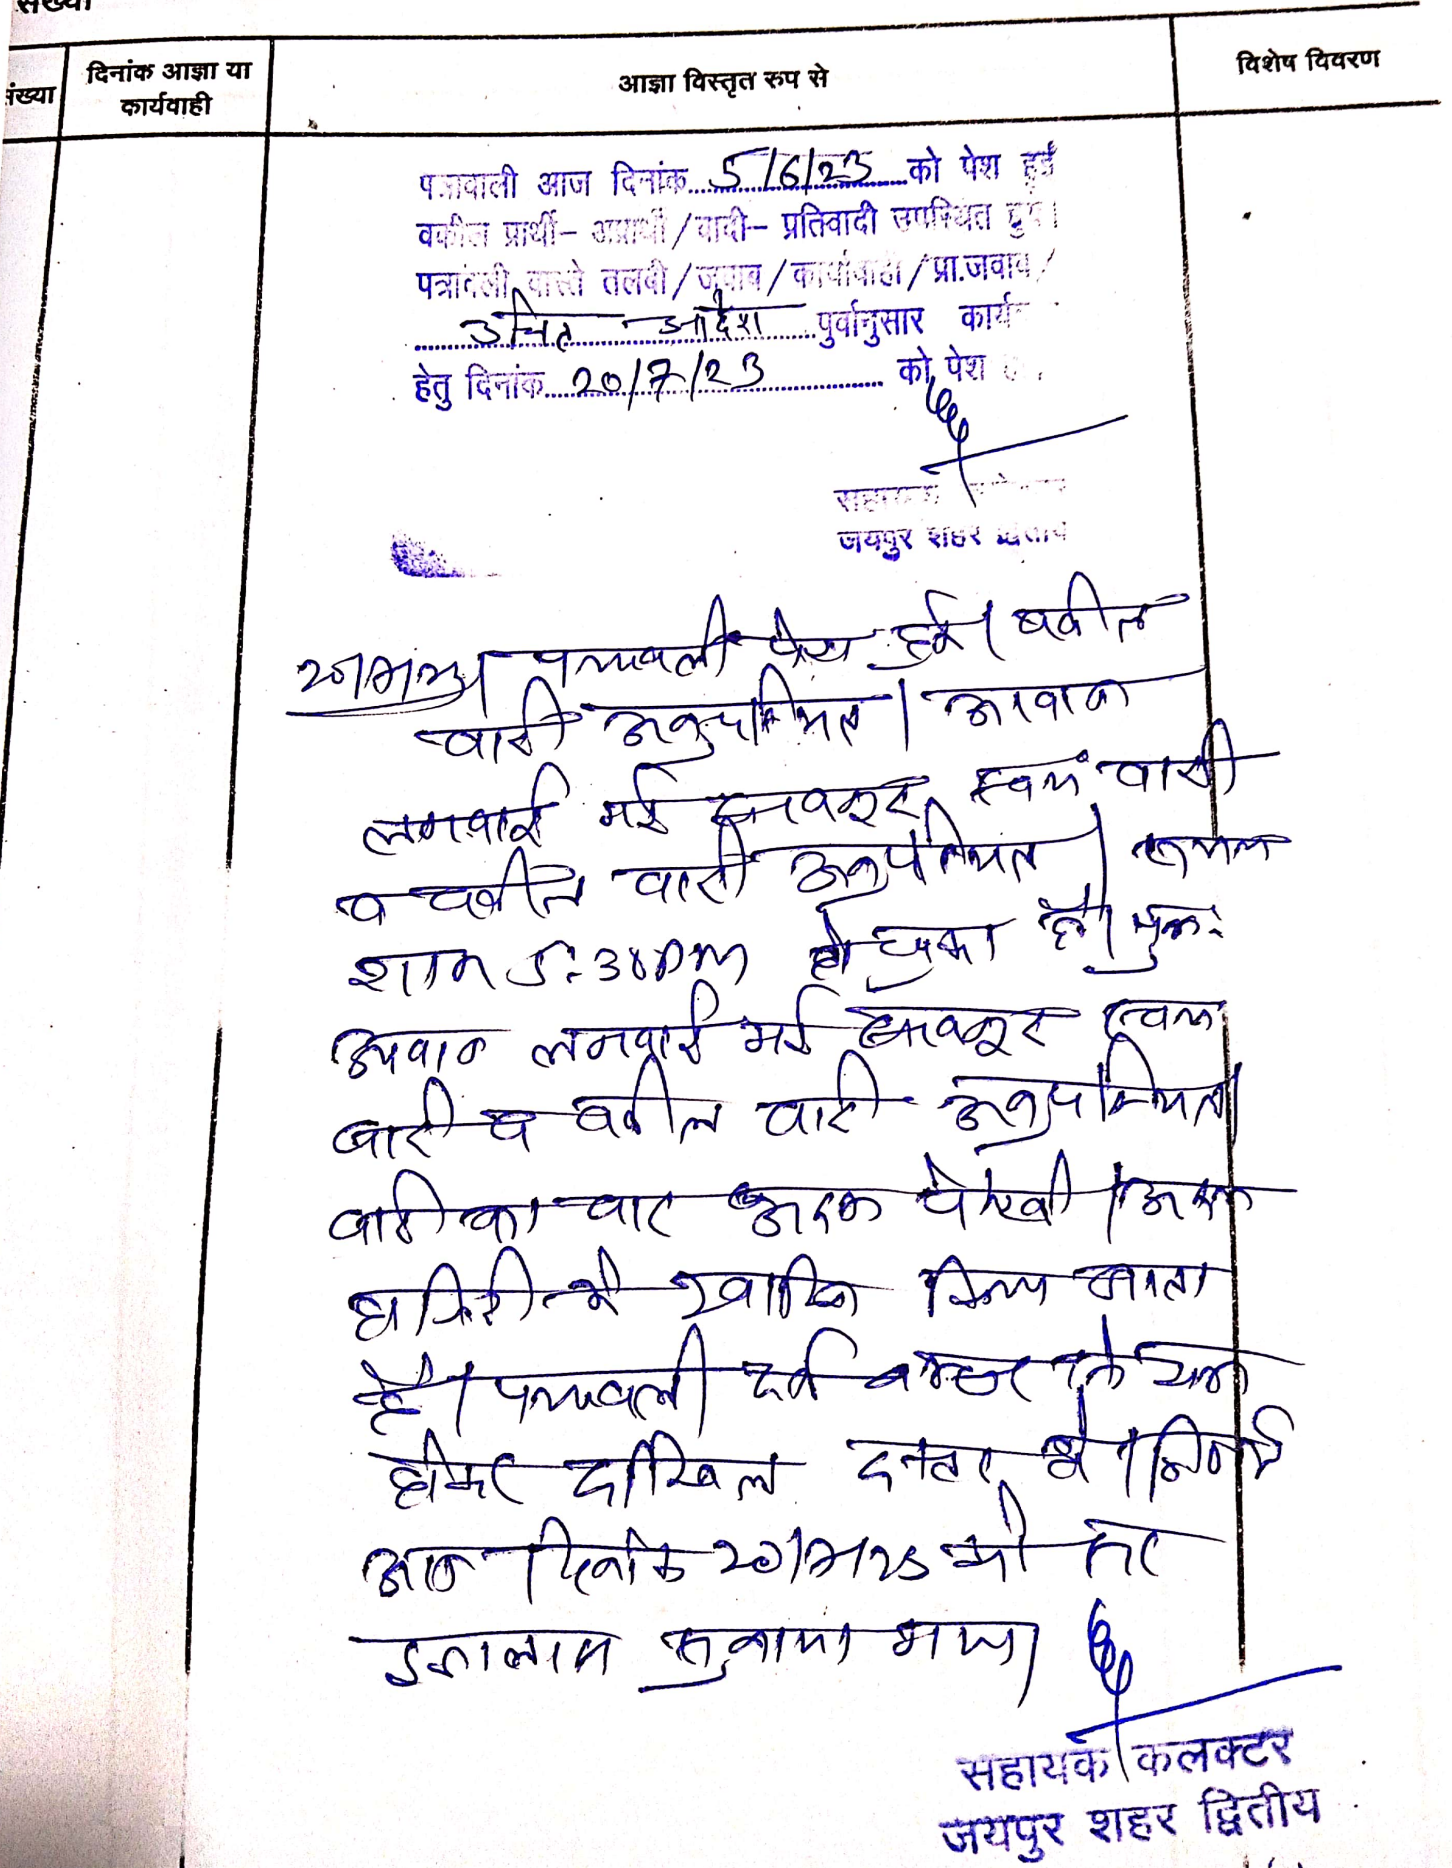 संख्या
संख्या
दिनांक आज्ञा या
कार्यवाही
आज्ञा विस्तृत रुप से
विशेष विवरण
पत्रावाली आज दिनांक 5/6/23 को पेश हुई
वकील प्रार्थी- अप्रार्थी/वादी- प्रतिवादी उपस्थित हुए।
पत्रावली वास्ते तलबी/जवाब/कार्यावाही/प्रा.जवाब/
उचित आदेश पुर्वानुसार कार्य
हेतु दिनांक 20/7/23 को पेश
सहायक
जयपुर शहर द्वितीय
पत्रावली पेश हुई। वकील
वादी अनुपस्थित। आवाज
लगवाई गई बावजूद स्वयं वादी
व वकील वादी अनुपस्थित। समय
शाम 5:30 PM हो चुका है। पुनः
आवाज लगवाई गई बावजूद स्वयं
वादी व वकील वादी अनुपस्थित।
वादी का वाद अदम पैरवी। अदम
हाजिरी में खारिज किया जाता
है। पत्रावली दर्ज नम्बर से कम
होकर दाखिल दफ्तर हो। निर्णय
आज दिनांक को सरे
इजलास सुनाया गया।
सहायक कलक्टर
जयपुर शहर द्वितीय